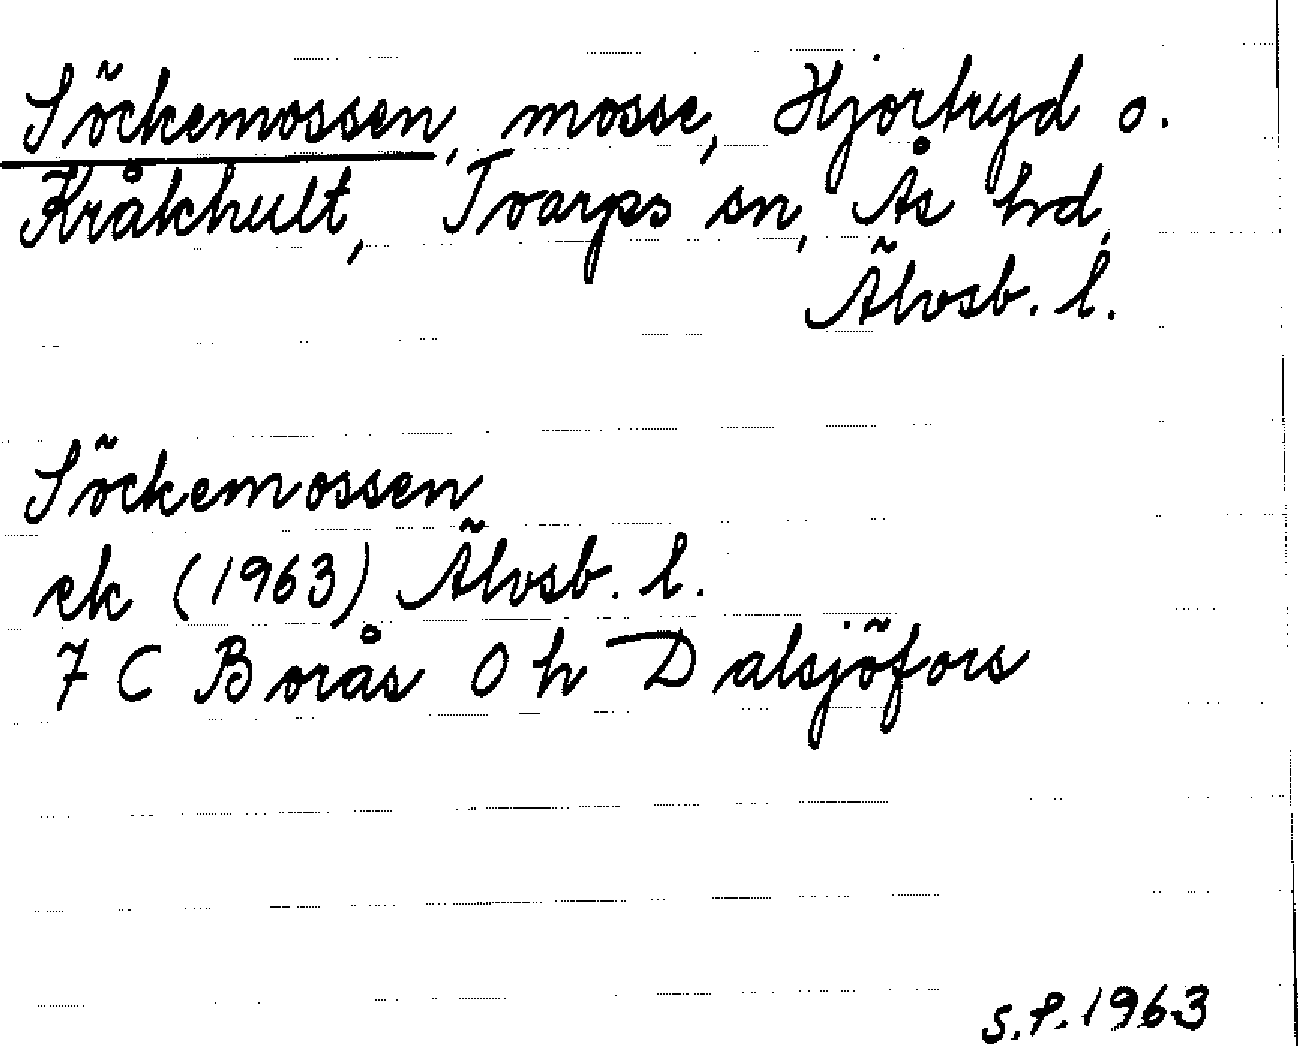 Söckemossen, mosse, Hjortryd o.
Kråkhult, Tvarps sn, Ås hd,
Älvsb. l.
Söckemossen
ek (1963) Älvsb. l.
7 C Borås 0 h Dalsjöfors
S.P. 1963